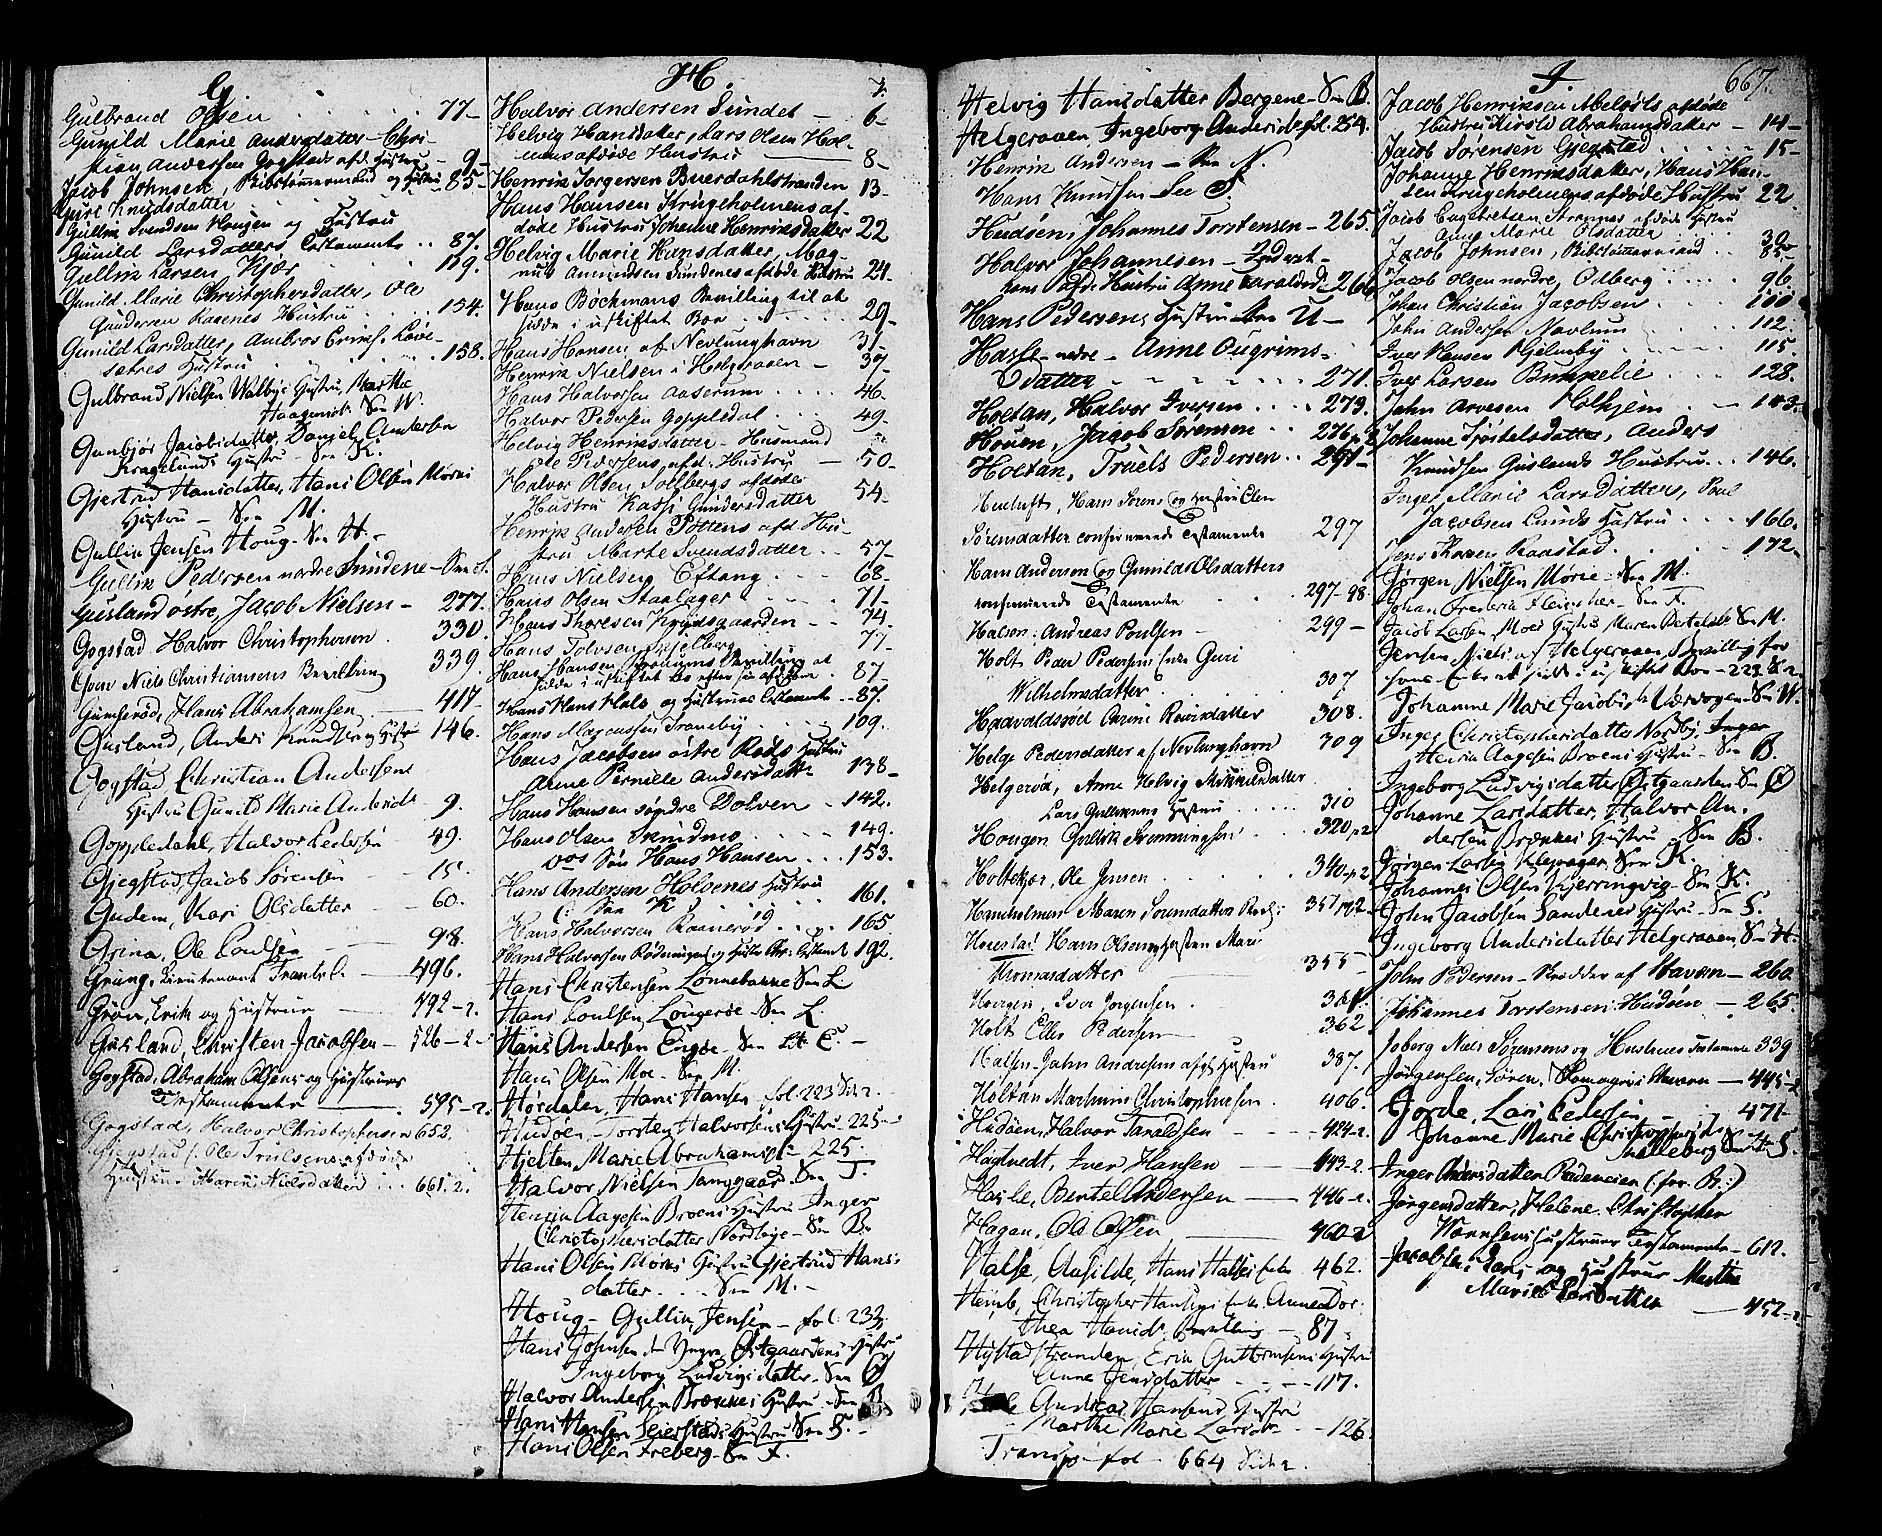 G
Gulbrand Olsen 77
Gunild Marie andersdatter Chri-
stian andersen Gogstads afd. Hustru 9
Jacob Johnsen, Ribstømmermand og Hustru 85
Guri Knudsdatter
Gullik Svendsen Haugen og Hustru
Gunild Larsdatters Testamente 87.
Gullik Larsen Kjær 119.
Gunild Marie Christophersdatter, Ole
Gundersen Ravnes Hustru 154.
Gunild Larsdatter, Ambros Løve-
sætres Hustru 158.
Gulbrand Nielsen Walbys Hustru, Marthe
See W.
Gunbjør Jacobsdatter, Daniel Andersen
Kragelunds Hustru See K.
Gjertrud Hansdatter, Hans Olsen Moræs
Hustru See M.
Gullik Jensen Houg See H.
Gullik Pedersen nordre Sundene See S.
Gusland østre, Jacob Nielsen 277.
Gogstad Halvor Christophersen 330.
Niels Christiansens Bevilling 339.
Gumserød, Hans Abrahamsen 417.
Gusland, Anders Knudsen og Hustru 146.
Gogstad Christian Andersens
Hustru Gunild Marie Andersdr 9.
Goppledahl, Halvor Pedersen 49.
Gjegstad, Jacob Sørensen 15.
Gudem, Kari Olsdatter 60.
Grina, Ole Poulsen 98.
Grüng, Lieutenant 496.
Grøn, Erik og Hustrue 492-2.
Gusland, Christen Jacobsen 526-2.
Gogstad, Abraham Olsens og Hustrues
Testamente 595-2.
Gogstad, Halvor Christophersen 652.
Gjegstad, Ole Truelsens afdøde
Hustrue Maren Nielsdatter 661.2.
H
7.
Halvor Andersen Sundet 6
Helvig Hansdatter, Lars Olsen Hol-
mens afdøde Hustru 8
Henrik Jørgersen Buerdahlstranden 13
Hans Hansen Krugeholmens af-
døde Hustru Johanne Henriksdatter 22
Helvig Marie Hansdatter, Mag-
nus Amundsen Sundenes afdøde Hustru 24
Hans Bøckmans Bevilling til at
sidde i uskiftet Boe 29
Hans Hansen af Nevlunghavn 31
Henrik Nielsen i Helgeraaen 37
Hans Halvorsen Aaserum 46
Halvor Pedersen Goppledal 49
Helvig Henriksdatter Husmand
Ole Pedersens afd. Hustru 50
Halvor Olsen Solbergs afdøde
Hustru Kassi Gundersdatter 54
Henrik Andersen Pøttens afd. Hu-
stru Marte Svendsdatter 57
Hans Nielsen Eftang 68
Hans Olsen Staalager 71
Hans Thoresen Krydsgaarden 74
Hans Tolvsen 77
Hans Hansen Bevilling at
sidde i uskiftet Bo efter sin afdøde 87
Hans Hans Hals og Hustrues Testamente 87.
Hans Magnussen Traneby 109.
Hans Jacobsen østre Røds Hustru
Anne Pernille Andersdatter 138
Hans Hansen søndre Dolven 142.
Hans Olsen Fremdmo 149.
dos Søn Hans Hansen 153.
Hans Andersen Holvenes Hustru
See K 161.
Hans Halvorsen Ravnerød 165
Hans Halvorsen Rødningens og Hustr. Testament 192.
Hans Christensen Lønnebakke See L.
Hans Poulsen Lougerøe See L.
Hans Andersen Engøe See Lit E.
Hans Olsen Moe See M.
Hørdalen, Hans Hansen fol. 223 Side 2.
Hudøen, Torsten Halvorsens Hustru 225
Hjelten, Marie Abrahamsd. 225.
Halvor Nielsen Tamggaard See T
Henrik Aagesen Broens Hustru Inger
Christophersdatter Nordbye See B.
Hans Olsen Moræs Hustru Gjertrud Hans-
datter See M.
Houg Gullik Jensen fol. 233.
Hans Hansen den Yngre Østgaardens Hustru
Ingeborg Ludvigsdatter See Ø
Halvor Andersen Brekkes Hustru See B.
Hans Hansen Seierstads Hustru See S.
Hans Olsen Freberg See F.
Helvig Hansdatter Bergene See B.
Helgeraaen, Ingeborg Andersd. fol. 254.
Henrik Andersen See N.
Hans Knudsen See S.
Hudøen, Johannes Torstensen 265.
Halvor Johannesen
Hustru Anne 266
Hans Pedersens Hustru See U
Hasle nedre Anne Ougrims-
datter 271.
Holtan, Halvor Iversen 273.
Houen, Jacob Sørensen 276 p 2
Holtan, Truels Pedersen 291
Hans Sørens. og Hustru Elen
Sørensdatter confirmerede Testamente 297
Hans Anderson og Gunild Olsdatters
confirmerede Testamente 297-98.
Halsen: Andreas Poulsen 299
Holt Peder Pedersens Enke Guri
Wilhelmsdatter 307
Haavaldsrød 308.
Helge Pedersdatter af Nevlunghavn 309
Helgerøa, Anne Helvig Mikkelsdatter
Lars Gulliksens Hustru 310
Hougen Gullik Svenningsen 320, p 2
Holtekjær, Ole Jensen 340 p 2
Maren Sørensdatter 351 p 2
Hans Olsen og Hustru Mari
Thomasdatter 355
Hvergen, Iver Jørgensen 361.
Holt Elles Pedersen 362
Halsen John Andersens afd. Hustru 387.
Holtan Mathias Christophersen 406.
Hudøen, Halvor Taraldsen 424-2.
Høgtvedt, Iver Hansen 443-2.
Hasle, Bertel Andersen 446-2.
Hagan, Ole Olsen 460-2
Halse, Aasilde, Hans Halses Enke 462.
Heimb, Christopher Hansens Enke Anne Dor-
thea Hansd. Bevilling 87.
Hystadstranden, Erik Guttormsens Hustru
Anne Jensdatter 117.
Andreas Hansens Hustru
Marthe Marie Larsdr 126.
Transp. fol. 664 Side 2.
I.
667.
Jacob Henriksen Melsoms afdøde
Hustru Kirstie Abrahamsdatter 14
Jacob Sørensen Gjegstad 15
Johanne Henriksdatter, Hans Han-
sen Krugeholmens afdøde Hustru 22
Jacob Engebretsen Strannes afdøde Hustru
Anne Marie Olsdatter 39
Jacob Johnsen, Ribstømmermand 85
Jacob Olsen nordre Odberg 96
Johan Christian Jacobsen 100.
John Andersen Navlum 112.
Iver Hansen Hjelmby 115.
Iver Larsen Bummelie 128.
John Arvesen Holhjem 143.
Johanne Kjøstelsdatter, Anders
Knudsen Guslands Hustru 146.
Inger Marie Larsdatter, Paul
Jacobsen Lunds Hustru 166.
Jens Raastad 172
Jørgen Nielsen Mørie See M.
Johan Frederik Fleischer See F.
Jacob Larsen Moes Hustru Maren Bertelsd. See M.
Jensen Niels af Helgeraaen, Bevilling for
hans Enke at sidde i uskiftet Boe 223 S. 2
Johanne Marie Jacobsd. See W.
Inger Christophersdatter Nordby,
Henrik Aagesen Broens Hustru See B.
Ingeborg Ludvigsdatter Østgaarden See Ø
Johanne Larsdatter, Halvor An-
dersen Brekkes Hustru See B.
Jørgen Larsen Klepager See K.
Johannes Olsen Kjerringvig See K.
John Jacobsen Sandenes Hustru See S.
Ingeborg Andersdatter Helgeraaen See H.
John Pedersen Skredder af Havnen 260.
Johannes Torstensen Hudøen 265.
Joberg Niels Sørensens og Hustrues Testamente 339
Jørgensen, Søren, 445-2
Jorde, Lars Pedersen 471
Johanne Marie Christophersd.
See Lit S.
Inger Andersdatter Rødningen (for R.)
Jørgensdatter, Helene. Christopher
Hustrues Testamente 612.
Jacobsen, Lars og Hustrue Marthe
Marie Larsdatter 452-2